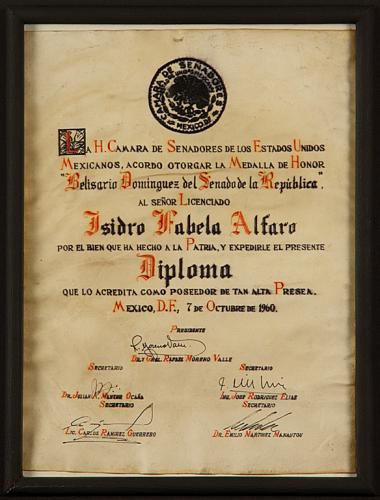 CAMARA DE SENADORES
MEXICO
LA H. CAMARA DE SENADORES DE LOS ESTADOS UNIDOS
MEXICANOS, ACORDO OTORGAR LA MEDALLA DE HONOR
"Belisario Dominguez del Senado de la República",
AL SEÑOR LICENCIADO
Isidro Fabela Alfaro
POR EL BIEN QUE HA HECHO A LA PATRIA, Y EXPEDIRLE EL PRESENTE
Diploma
QUE LO ACREDITA COMO POSEEDOR DE TAN ALTA PRESEA.
MEXICO, D.F., 7 DE OCTUBRE DE 1960.
PRESIDENTE
GRAL. RAFAEL MORENO VALLE
SECRETARIO SECRETARIO
DR. JULIAN A. MANZUR OCAÑA ING. JOSE RODRIGUEZ ELIAS
SECRETARIO SECRETARIO
LIC. CARLOS RAMIREZ GUERRERO DR. EMILIO MARTINEZ MANAUTOU